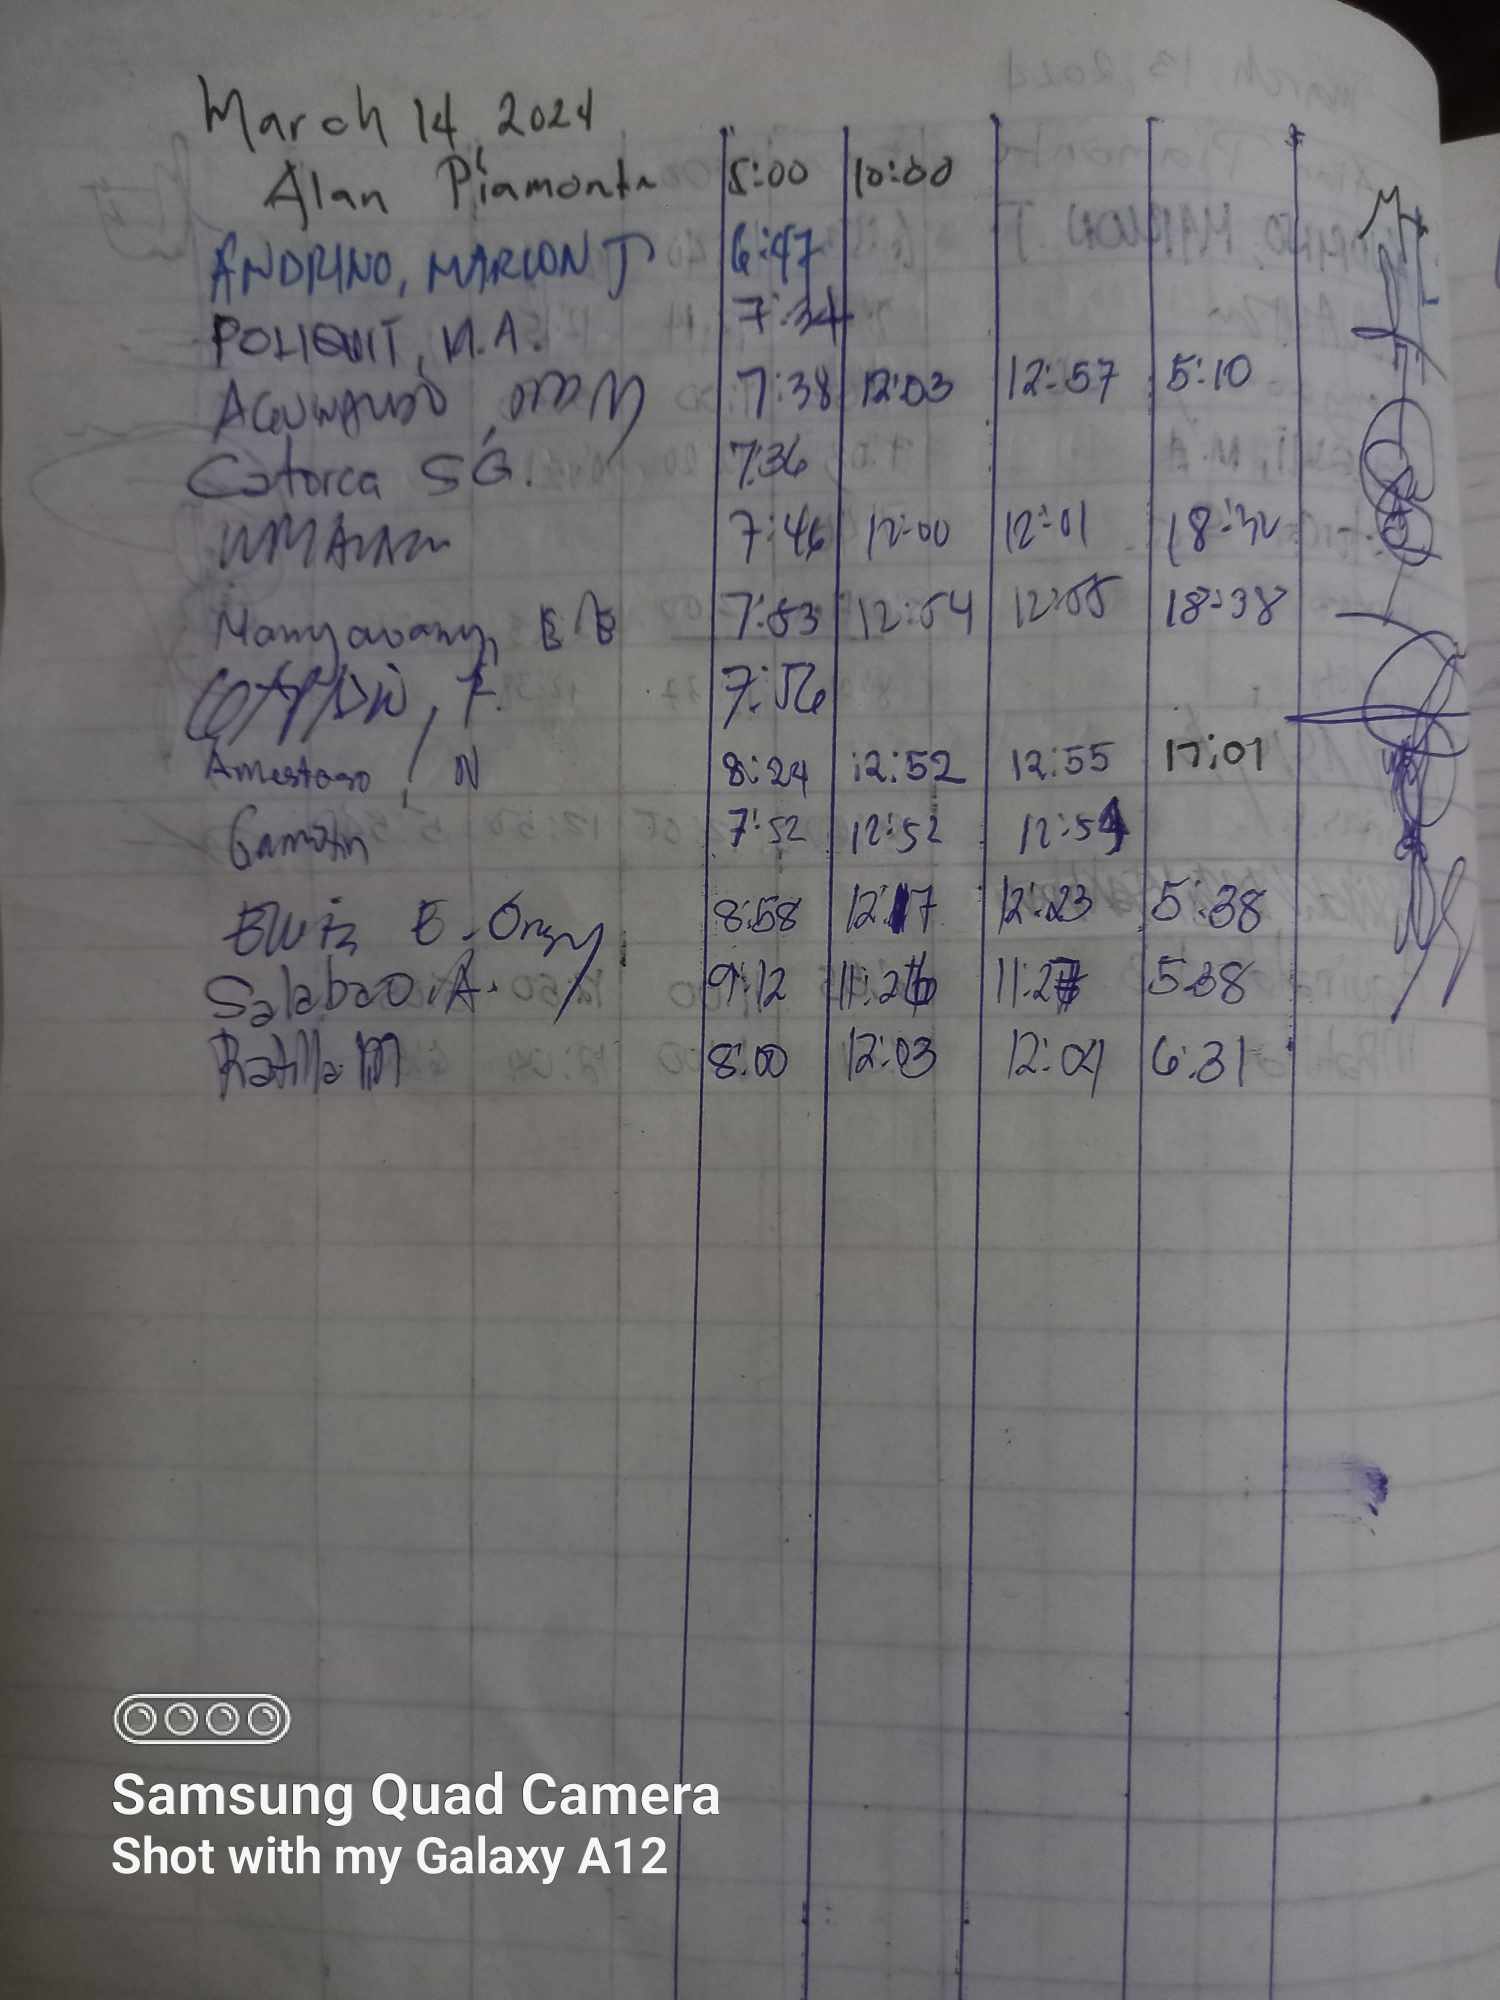 March 14, 2024
Alan Piamonte 5:00 10:00
ANDRINO, MARLON J 6:47
POLIQUIT, M.A. 7:34
7:38 12:03 12:57 5:10
Catorca SG. 7:36
7:46 12:00 12:01 18:32
7:53 12:54 12:55 18:38
F. 7:56
N 8:24 12:52 12:55 17:01
Gamotin 7:52 12:52 12:54
E. 8:58 12:17 12:23 5:38
Salabao A. 9:12 11:26 11:27 5:38
Ratilla M 8:00 12:03 12:04 6:31
Samsung Quad Camera
Shot with my Galaxy A12